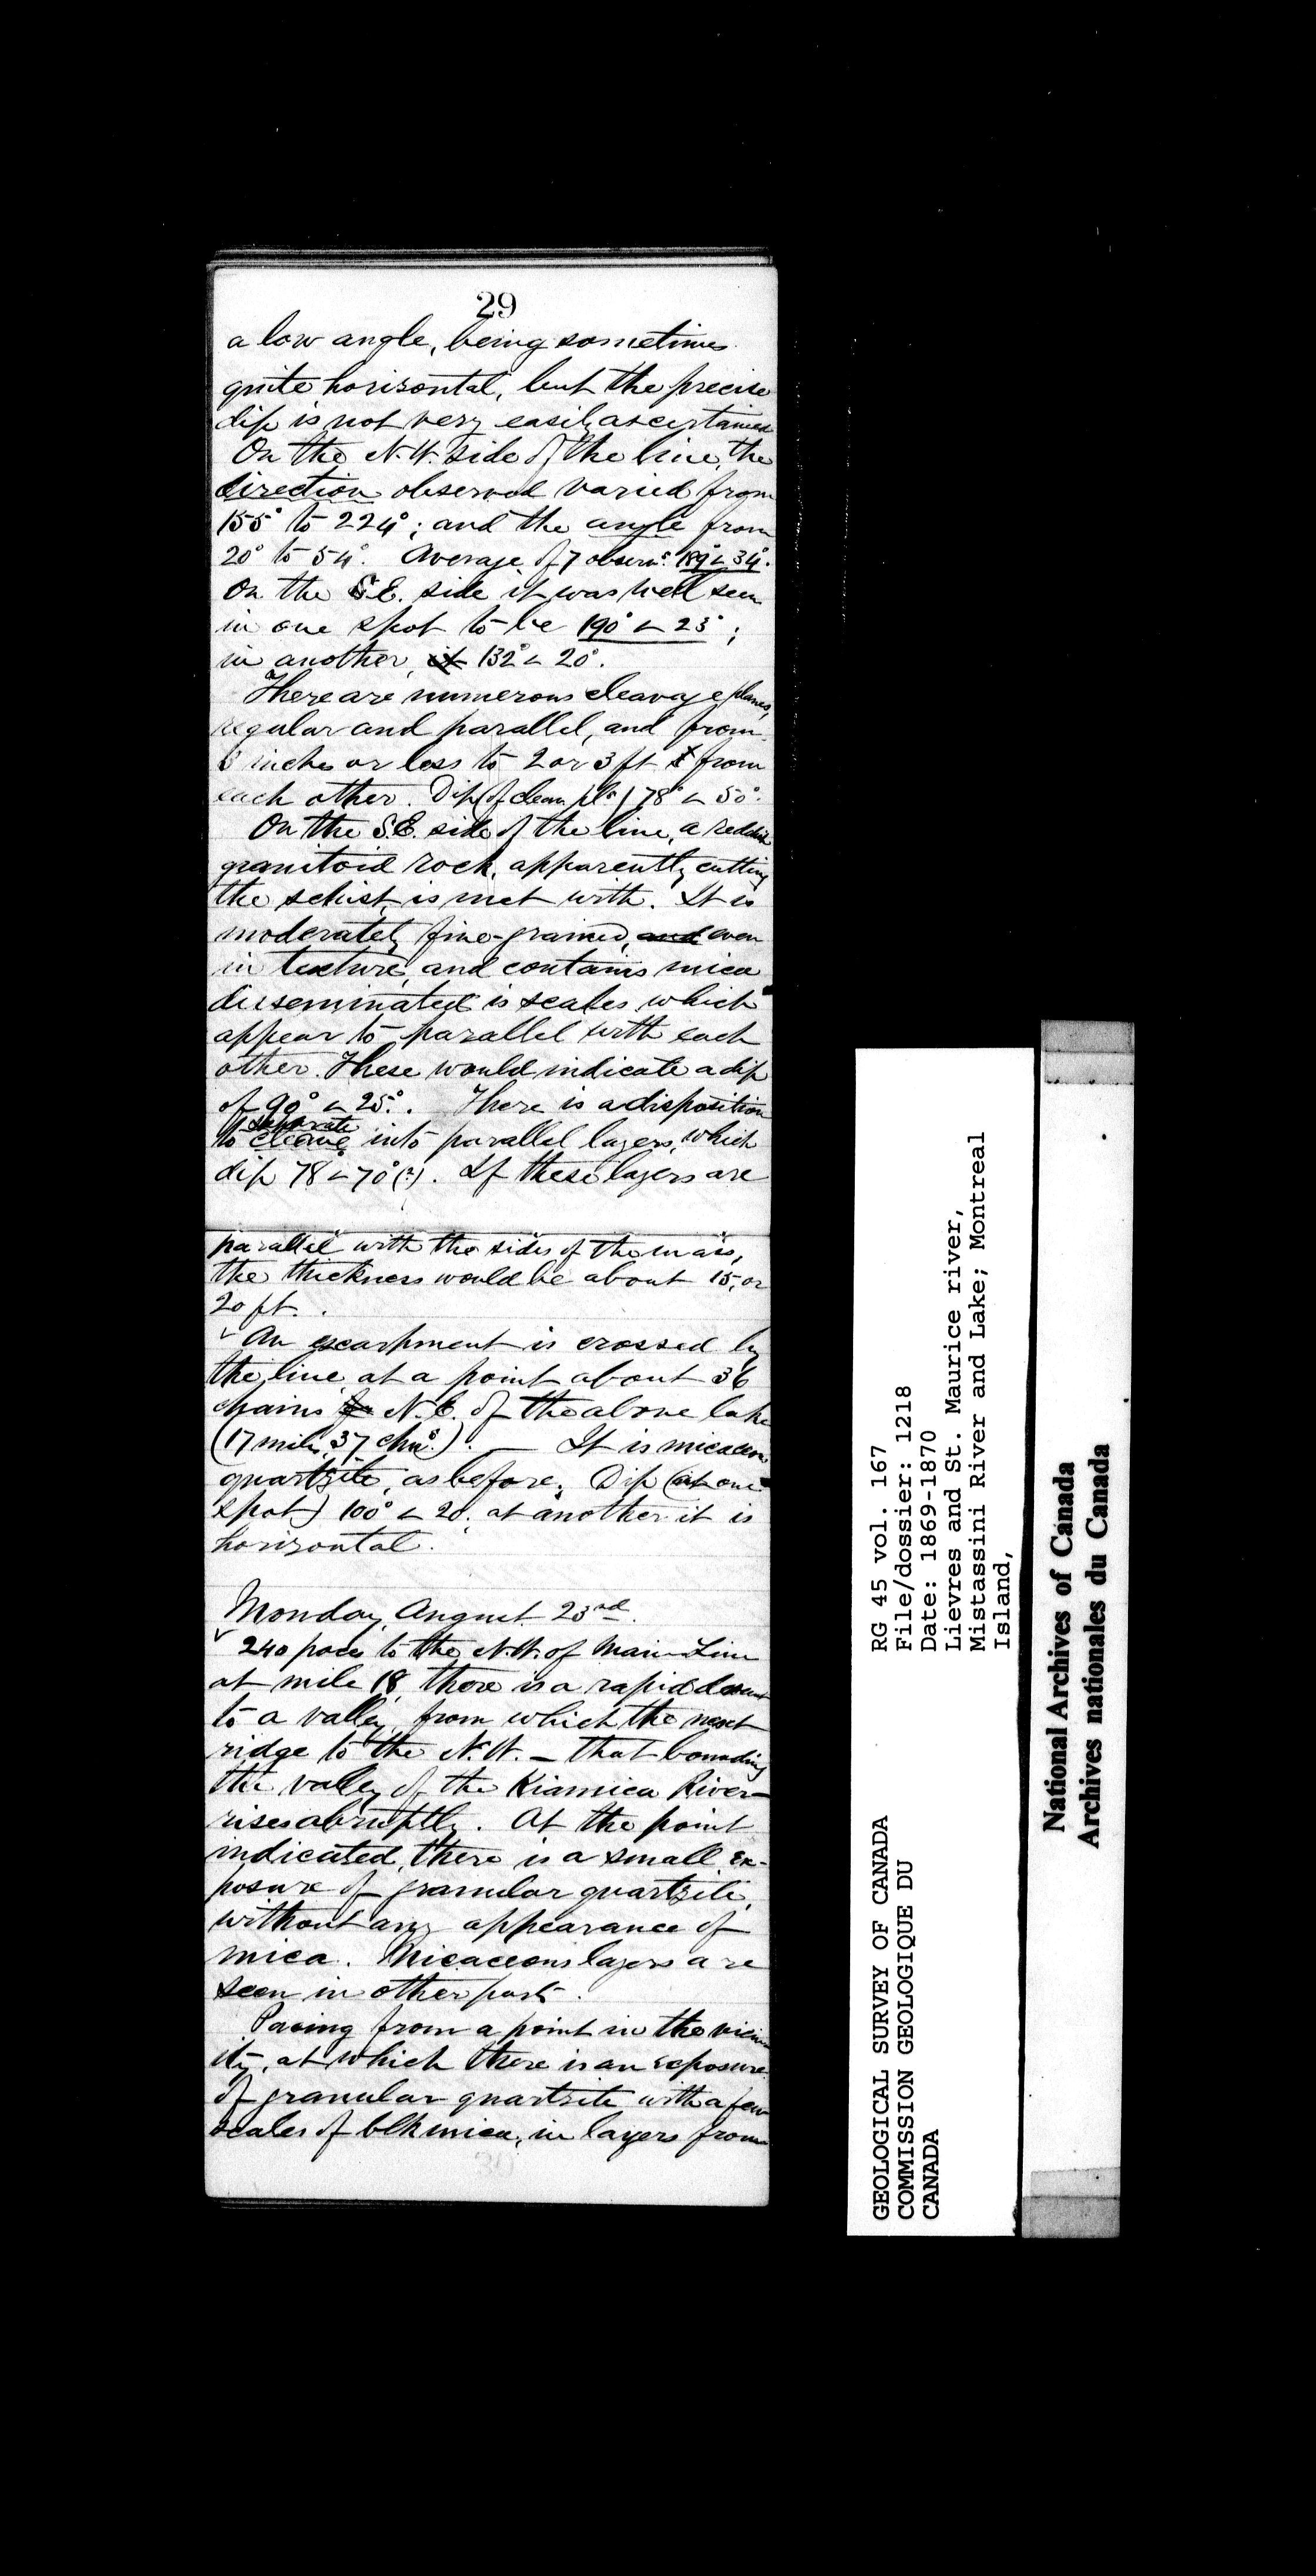 29
a low angle, being sometimes
quite horizontal, but the precise
dip is not very easily ascertained
On the N.W. side of the line, the
direction observed varied from
155° to 224°; and the angle from
20° to 54°. Average of 7 observns. 189° ∠ 34°.
On the S.E. side it was well seen
in one spot to be 190° ∠ 23°;
in another, it 132° ∠ 20°.
There are numerous cleavage planes,
regular and parallel, and from
6 inches or less to 2 or 3 ft from
each other. Dip (of cleav. pls.) 78° ∠ 50°.
On the S.E. side of the line, a reddish
granitoid rock, apparently cutting
the schist, is met with. It is
moderately fine-grained, and even
in texture, and contains mica
disseminated is scales which
appear to parallel with each
other. These would indicate a dip
of 90° ∠ 25°. There is a disposition
separate
to cleave into parallel layers, which
dip 78° ∠ 70° (?). If these layers are
parallel with the sides of the mass,
the thickness would be about 15, or
20 ft.
An escarpment is crossed by
the line, at a point about 36
chains N.E. of the above lake
(17 miles, 37 chns.). — It is micaceous
quartzite, as before. Dip (at one
spot) 100° ∠ 20°, at another it is
horizontal.
Monday, August 23rd.
240 paces to the N.W. of Main Line
at mile 18, there is a rapid descent
to a valley, from which the next
ridge to the N.W. – that bounding
the valley of the Kiamica River –
rises abruptly. At the point
indicated, there is a small ex-
posure of granular quartzite,
without any appearance of
mica. Micaceous layers are
seen in other parts.
Pacing from a point in the vicin
ity, at which there is an exposure
of granular quartzite with a few
scales of blk mica, in layers from
30
RG 45 vol. 167
File/dossier: 1218
Date: 1869-1870
Lievres and St. Maurice river,
Mistassini River and Lake; Montreal
Island,
GEOLOGICAL SURVEY OF CANADA
COMMISSION GEOLOGIQUE DU
CANADA
National Archives of Canada
Archives nationales du Canada